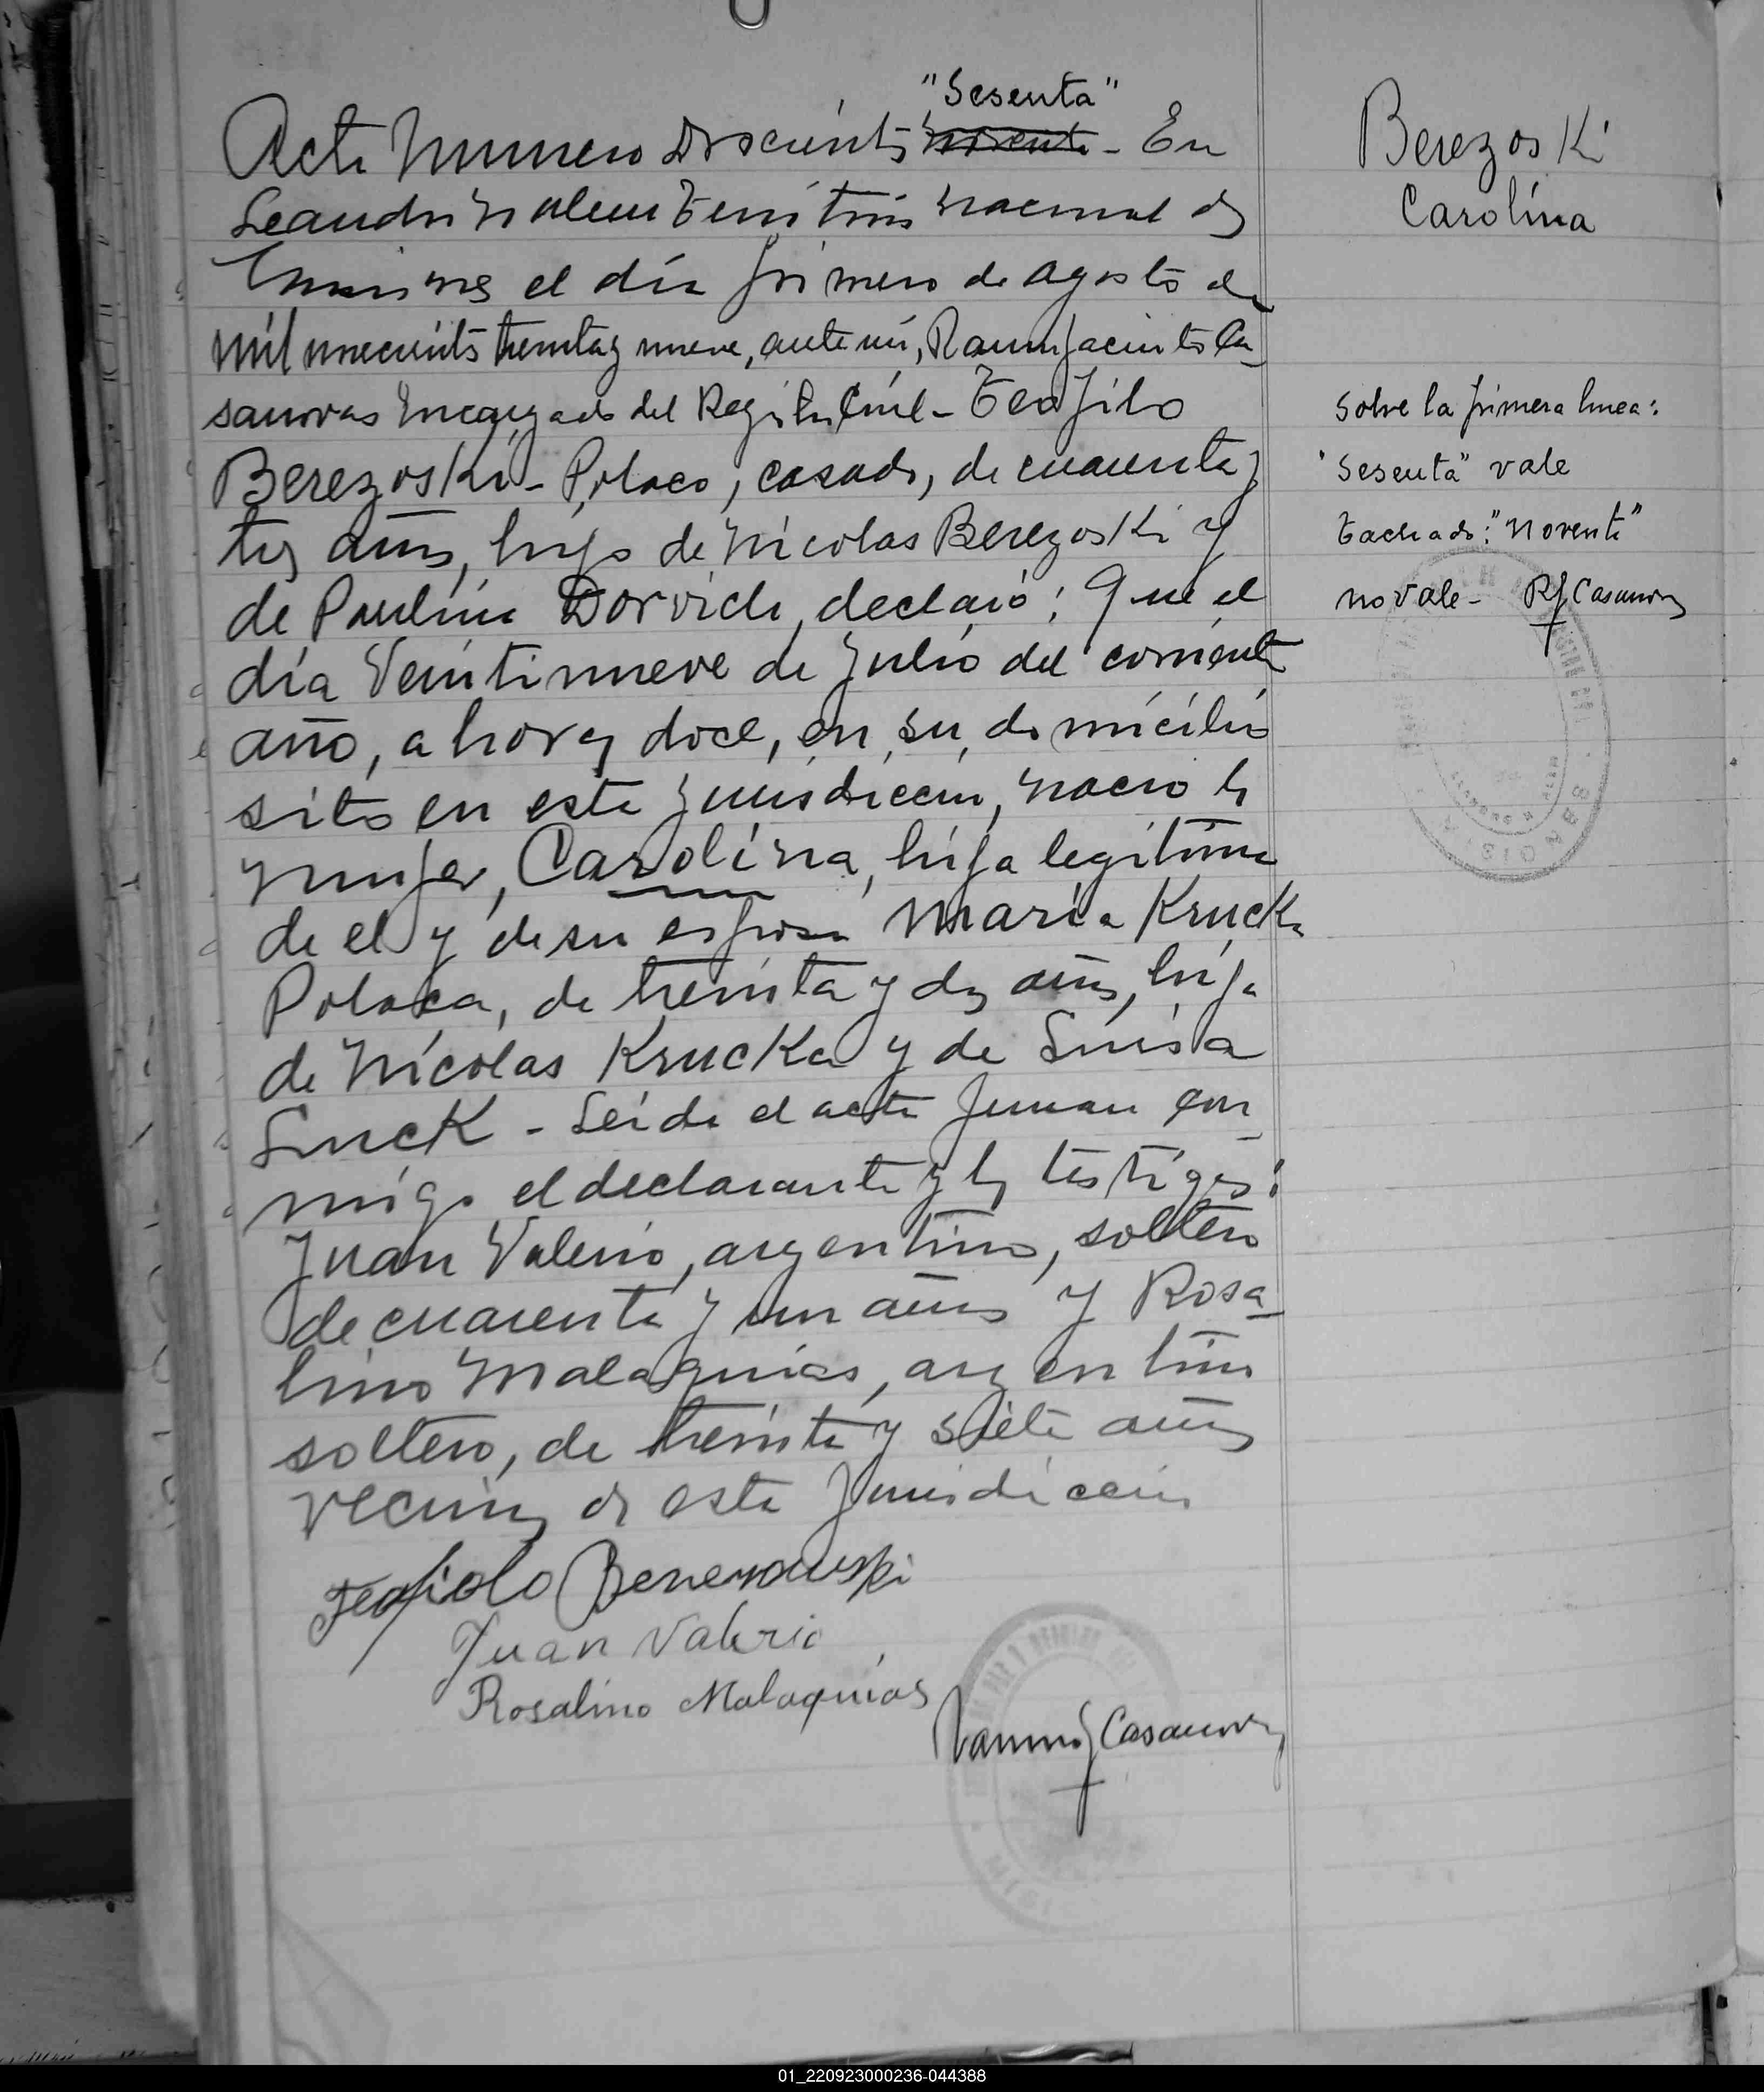 "Sesenta"
Acta Numero Doscientos noventa - En
Leandro N Alem Territorio Nacional de
Misiones el día primero de Agosto de
mil novecientos treinta y nueve, ante mí, Ramon Jacinto Ca-
sanovas Encargado del Registro Civil - Teofilo
Berezoski - Polaco, casado, de cuarenta y
tres años, hijo de Nicolas Berezoski y
de Paulina Dorvich, declaró: Que el
día Veintinueve de Julio del corriente
año, a horas doce, en su domicilio
sito en esta jurisdiccion, nacio la
mujer, Carolina, hija legitima
de el y de su esposa Maria Krucka
Polaca, de treinta y dos años, hija
de Nicolas Krucka y de Luisa
Luck - Leida el acta firman con-
migo el declarante y los testigos:
Juan Valerio, argentino, soltero
de cuarenta y un años y Rosa-
lino Malaquias, argentino
soltero, de treinta y siete años
vecinos de esta Jurisdiccion
Teofiolo Berezowski
Juan Valerio
Rosalino Malaquias
Ramon J Casanovas
Berezoski
Carolina
Sobre la primera linea:
"Sesenta" vale
Tachado: "Noventa"
no vale - RJ Casanovas
01_220923000236-044388